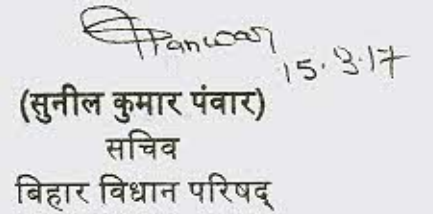 Panwar
15.3.17
(सुनील कुमार पंवार)
सचिव
बिहार विधान परिषद्